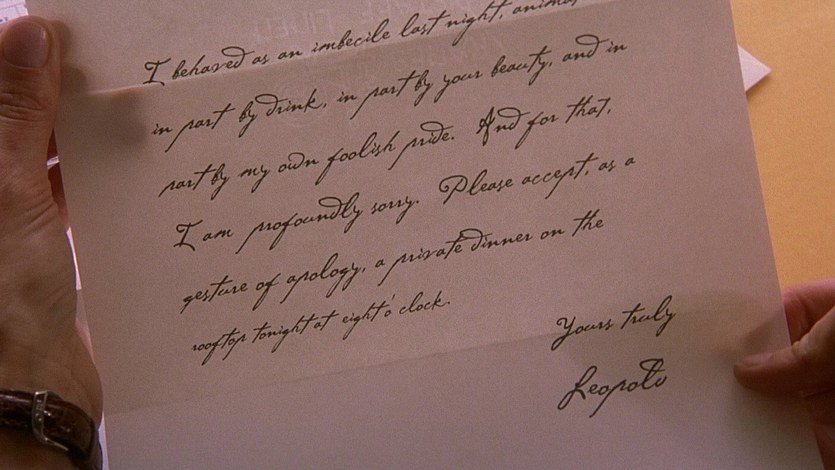 I behaved as an imbecile last night,
in part by drink, in part by your beauty, and in
part by my own foolish pride. And for that,
I am profoundly sorry. Please accept, as a
gesture of apology, a private dinner on the
rooftop tonight at eight o' clock.
Yours truly
Leopold